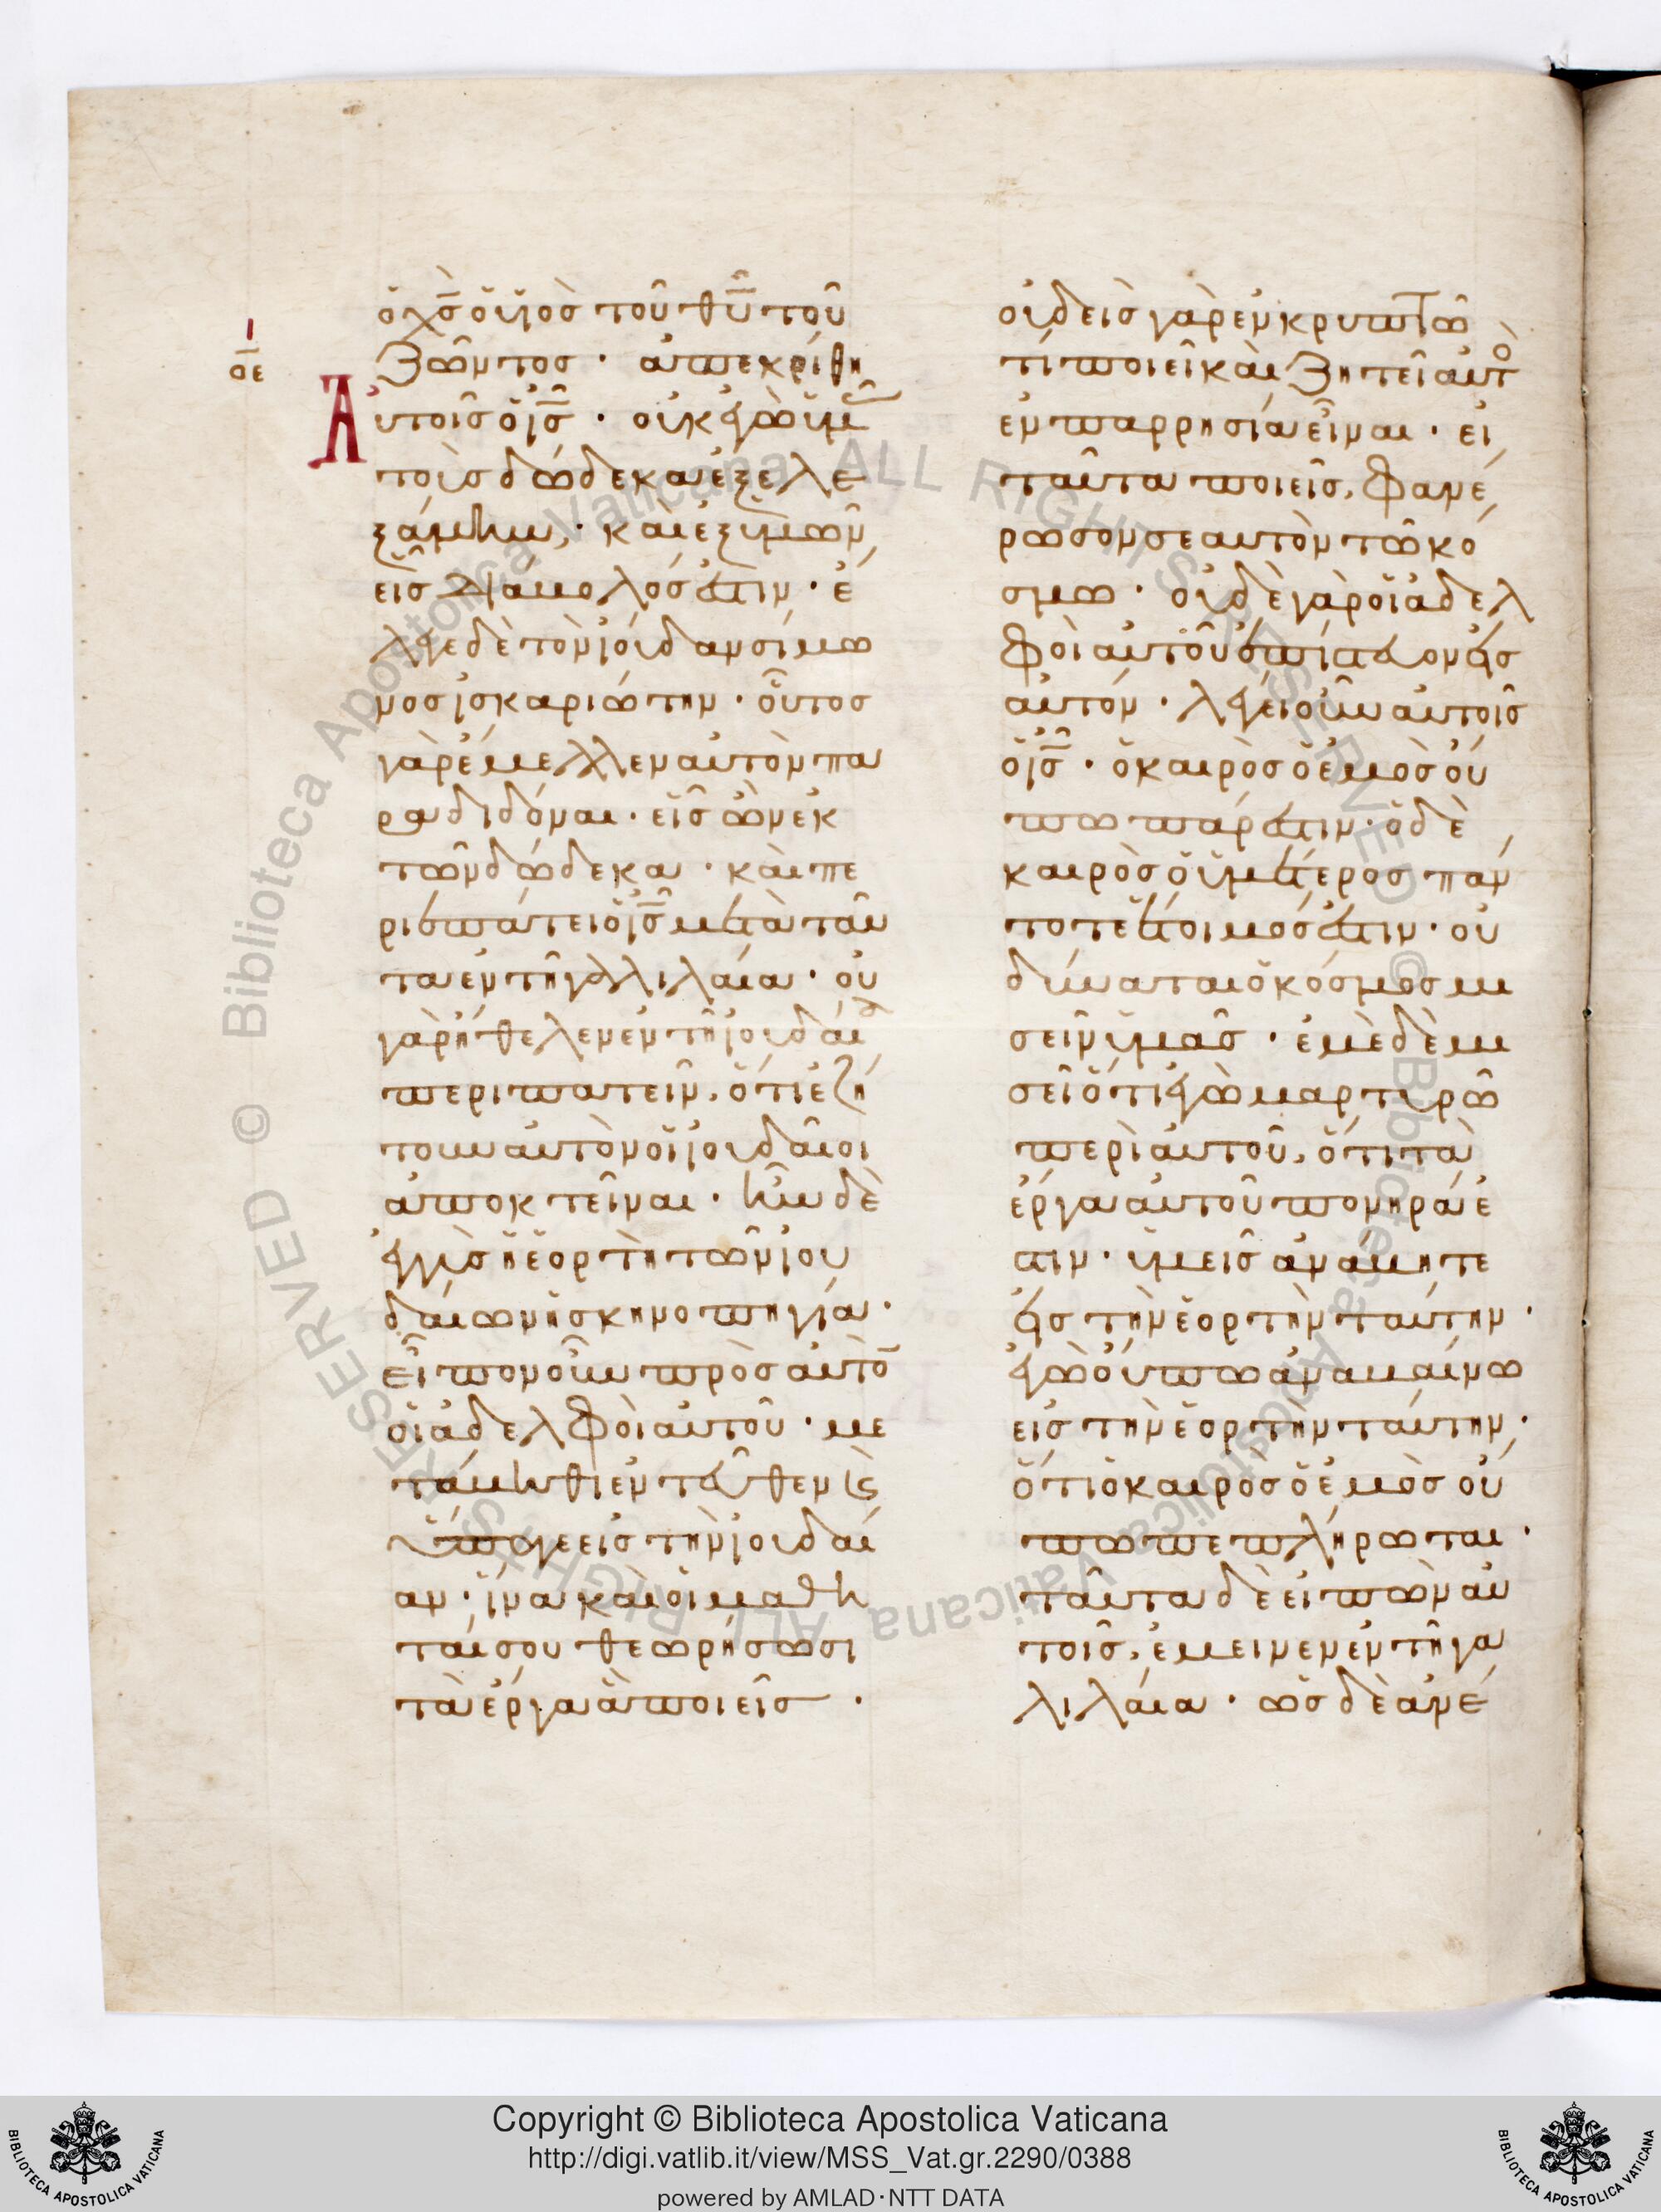 ὁ χς ὁ υἱὸς τοῦ θυ τοῦ
ζῶντος · ἀπεκρίθη
ι
οε
Αὐτοῖς ὁ ις · οὐκ ἐγὼ ὑμᾶς
τοὺς δώδεκα ἐξελε
ξάμην, · καὶ ἐξ ὑμῶν
εἷς διάβολός ἐστιν · ἔ
λεγε δὲ τὸν ἰούδαν σίμω
νος ἰσκαριώτην · οὗτος
γὰρ ἔμελλεν αὐτὸν πα
ραδιδόναι · εἷς ὢν ἐκ
τῶν δώδεκα · καὶ πε
ριεπάτει ὁ ις μετὰ ταῦ
τα ἐν τῇ γαλιλαία · οὐ
γὰρ ἤθελεν ἐν τῇ ἰουδαία
περιπατεῖν, ὅτι ἐζή
τουν αὐτὸν οἱ ἰουδαῖοι
ἀποκτεῖναι · ἦν δὲ
ἐγγὺς ἡ ἑορτὴ τῶν ἰου
δαίων ἡ σκηνοπηγία ·
εἶπον οὖν πρὸς αὐτὸ
οἱ ἀδελφοὶ αὐτοῦ · με
τάβηθι ἐντεῦθεν ϗ
ὕπαγε εἰς τὴν ἰουδαί
αν · ἵνα καὶ οἱ μαθη
ταί σου θεωρήσωσι
τὰ ἔργα ἃ ποιεῖς ·
οὐδεὶς γὰρ ἐν κρυπτῶ
τὶ ποιεῖ καὶ ζητεῖ αὐτὸ
ἐν παρρησία εἶναι · εἰ
ταῦτα ποιεῖς, φανέ
ρωσον σεαυτὸν τῶ κό
σμω · οὐδὲ γὰρ οἱ ἀδελ
φοὶ αὐτοῦ ἐπίστευον εἰς
αὐτόν · λέγει οὖν αὐτοῖς
ὁ ις · ὁ καιρὸς ὁ ἐμὸς οὔ
πω πάρεστιν · ὁ δὲ
καιρὸς ὁ ὑμέτερος πάν
τοτε ἕτοιμός ἐστιν · οὐ
δύναται ὁ κόσμος μι
σεῖν ὑμᾶς · ἐμὲ δὲ μι
σεῖ ὅτι ἐγὼ μαρτυρῶ
περὶ αὐτοῦ, ὅτι τὰ
ἔργα αὐτοῦ πονηρά ἐ
στιν · ὑμεῖς ἀνάβητε
εἰς τὴν ἑορτὴν ταύτην ·
ἐγὼ οὔπω ἀναβαίνω
εἰς τὴν ἑορτην ταύτην ·
ὅτι ὁ καιρὸς ὁ ἐμὸς οὔ
πω πεπλήρωται ·
ταῦτα δὲ εἰπὼν αὐ
τοῖς, ἔμεινεν ἐν τῇ γα
λιλαία · ὡς δὲ ἀνέ
© Biblioteca Apostolica Vaticana ALL RIGHTS RESERVED
© Biblioteca Apostolica Vaticana ALL RIGHTS RESERVED
Copyright © Biblioteca Apostolica Vaticana
http://digi.vatlib.it/view/MSS_Vat.gr.2290/0388
powered by AMLAD·NTT DATA
BIBLIOTECA APOSTOLICA VATICANA
BIBLIOTECA APOSTOLICA VATICANA